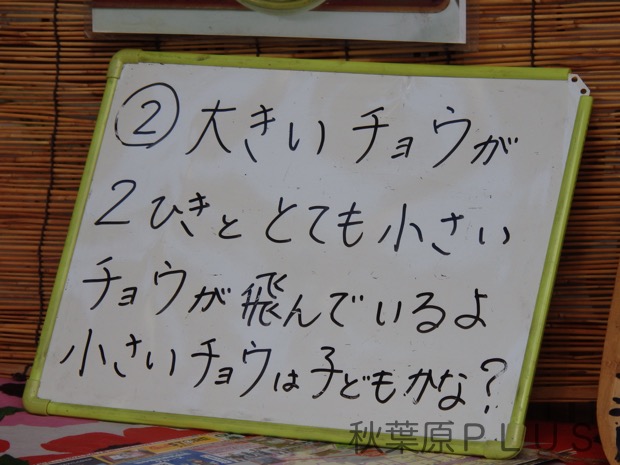 ② 大きい チョウが
2ひきと とても 小さい
チョウが 飛んでいるよ
小さいチョウは子どもかな？
秋葉原PLUS